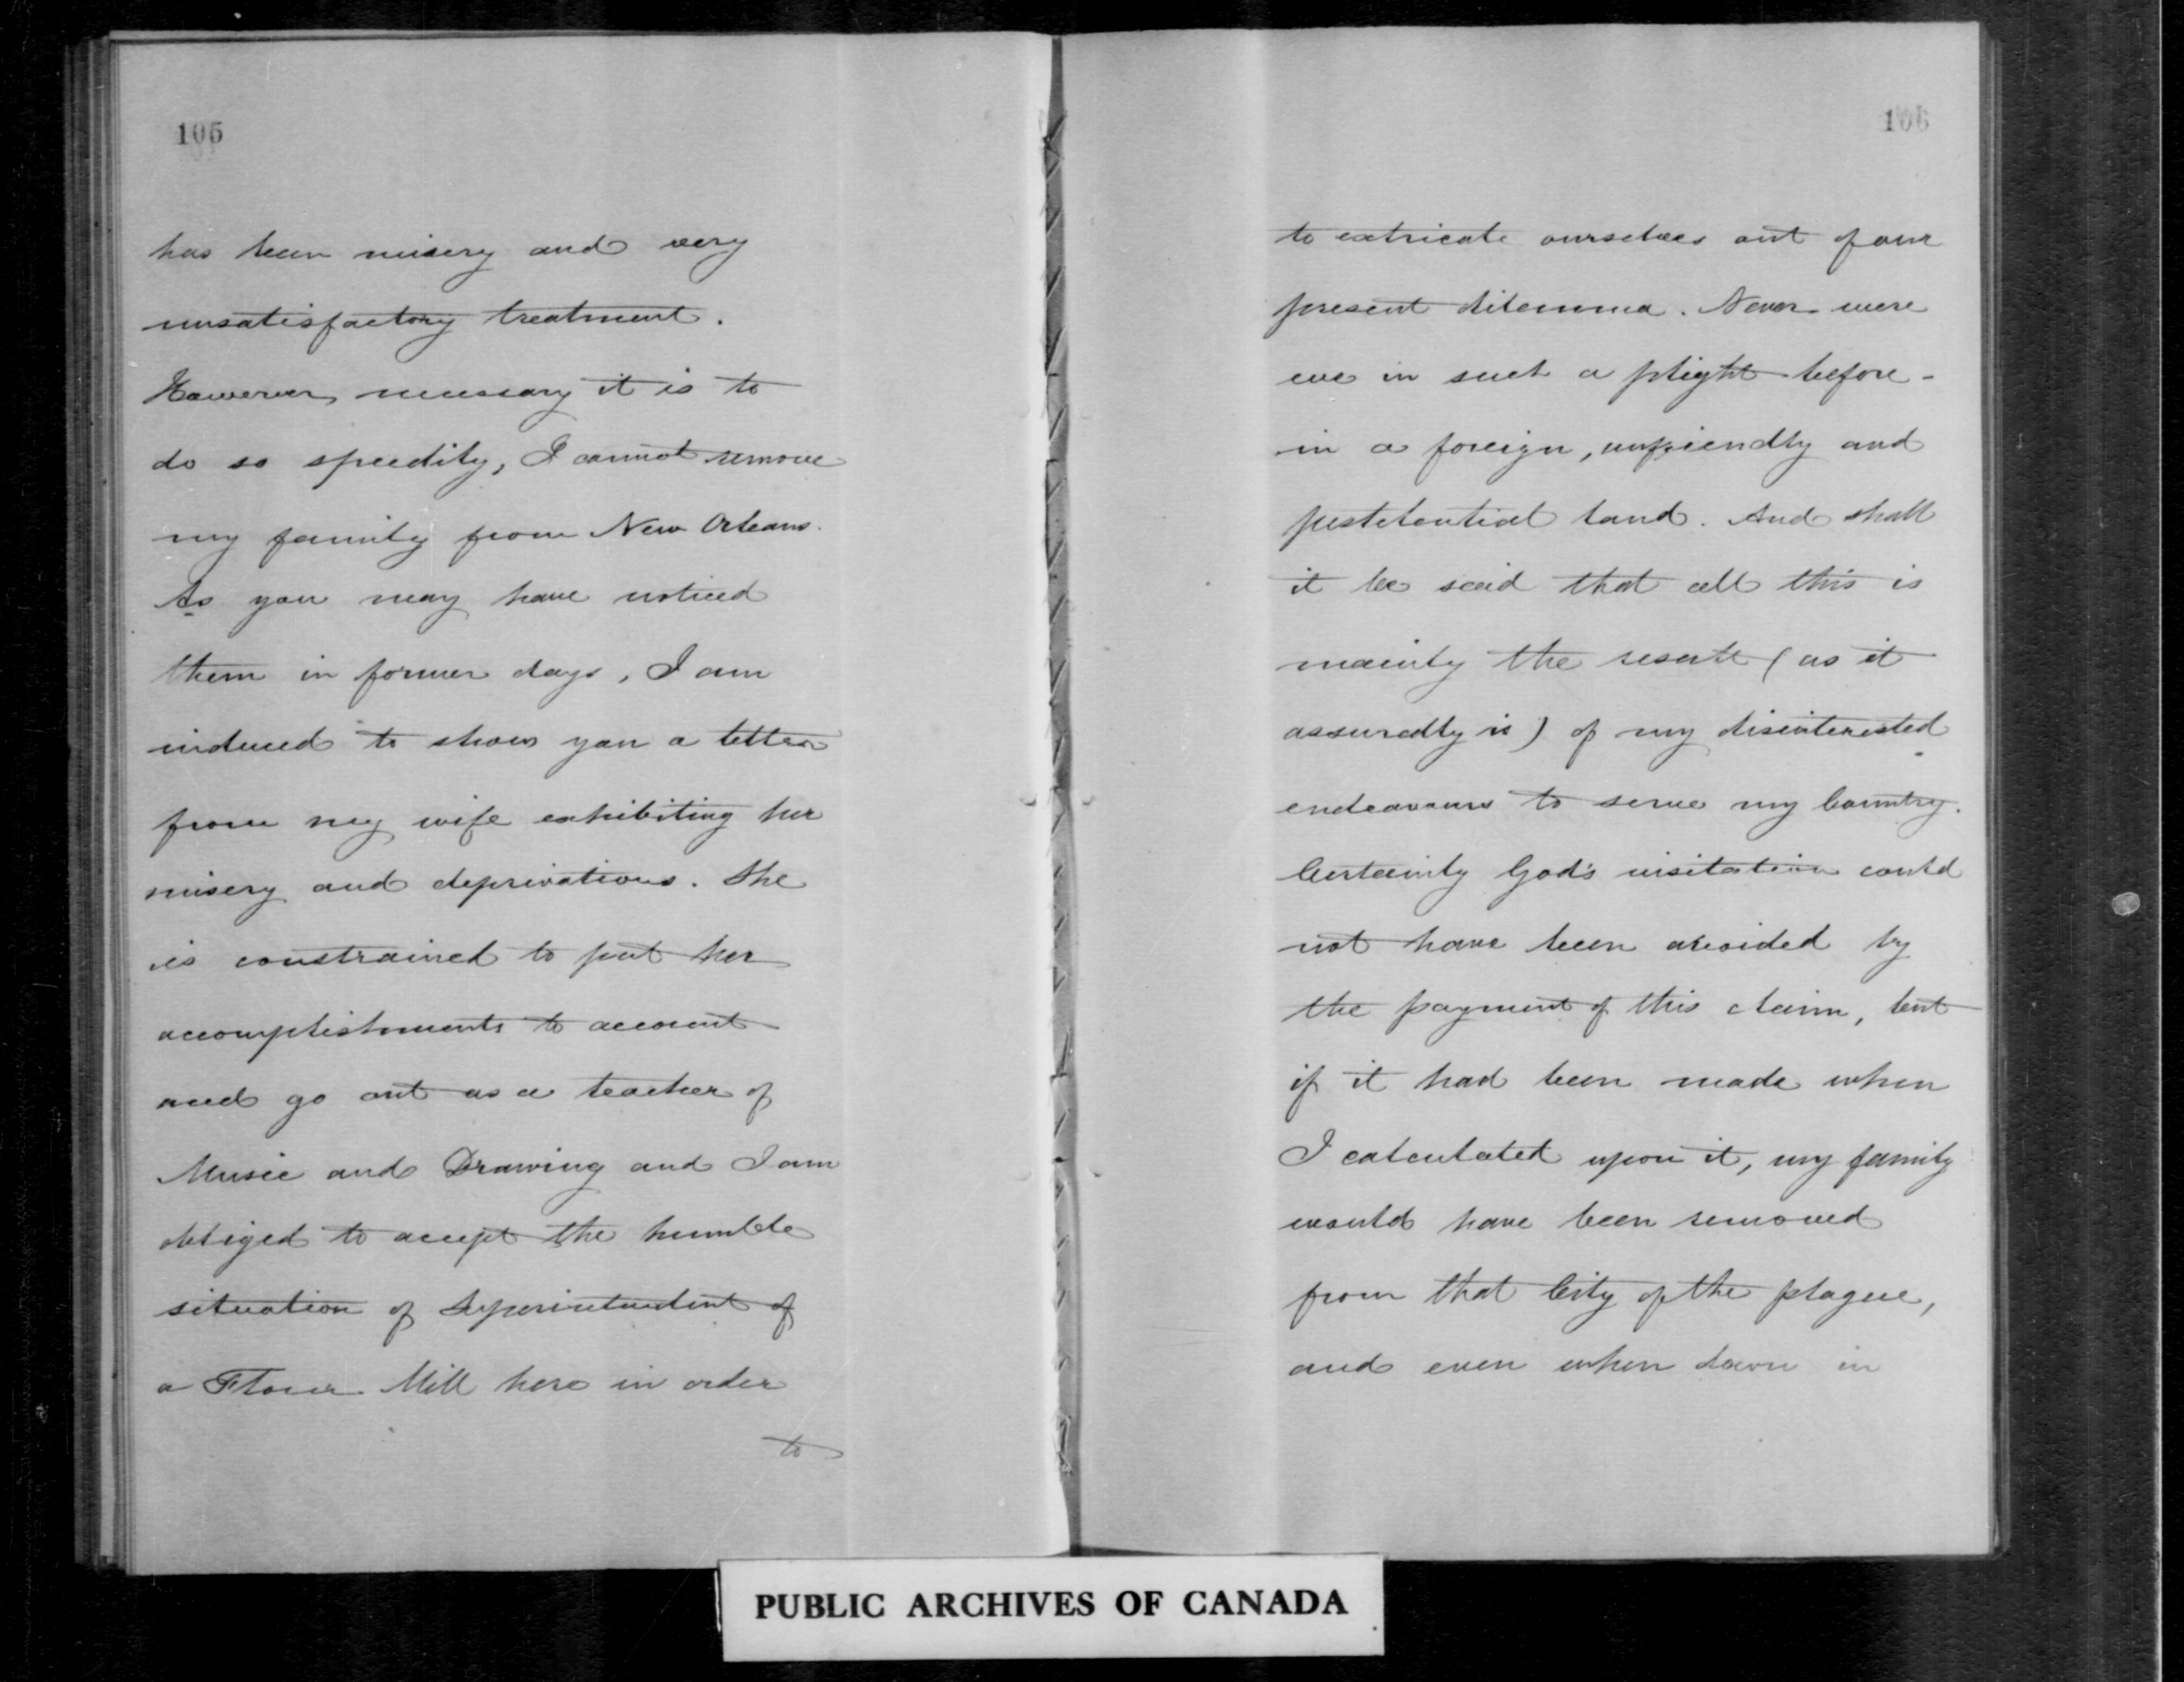 105
has been misery and very
unsatisfactory treatment.
However necessary it is to
do so speedily, I cannot remove
my family from New Orleans.
As you may have noticed
them in former days, I am
induced to show you a letter
from my wife exhibiting her
misery and deprivations. She
is constrained to put her
accomplishments to account
and go out as a teacher of
Music and Drawing and I am
obliged to accept the humble
situation of Superintendent of
a Flour Mill here in order
to
106
to extricate ourselves out of our
present dilemma. Never were
we in such a plight before -
in a foreign, unfriendly and
pestilential land. And shall
it be said that all this is
mainly the result (as it
assuredly is) of my disinterested
endeavours to serve my Country.
Certainly God's visitation could
not have been avoided by
the payment of this claim, but
if it had been made when
I calculated upon it, my family
would have been removed
from that City of the plague,
and even when down in
PUBLIC ARCHIVES OF CANADA